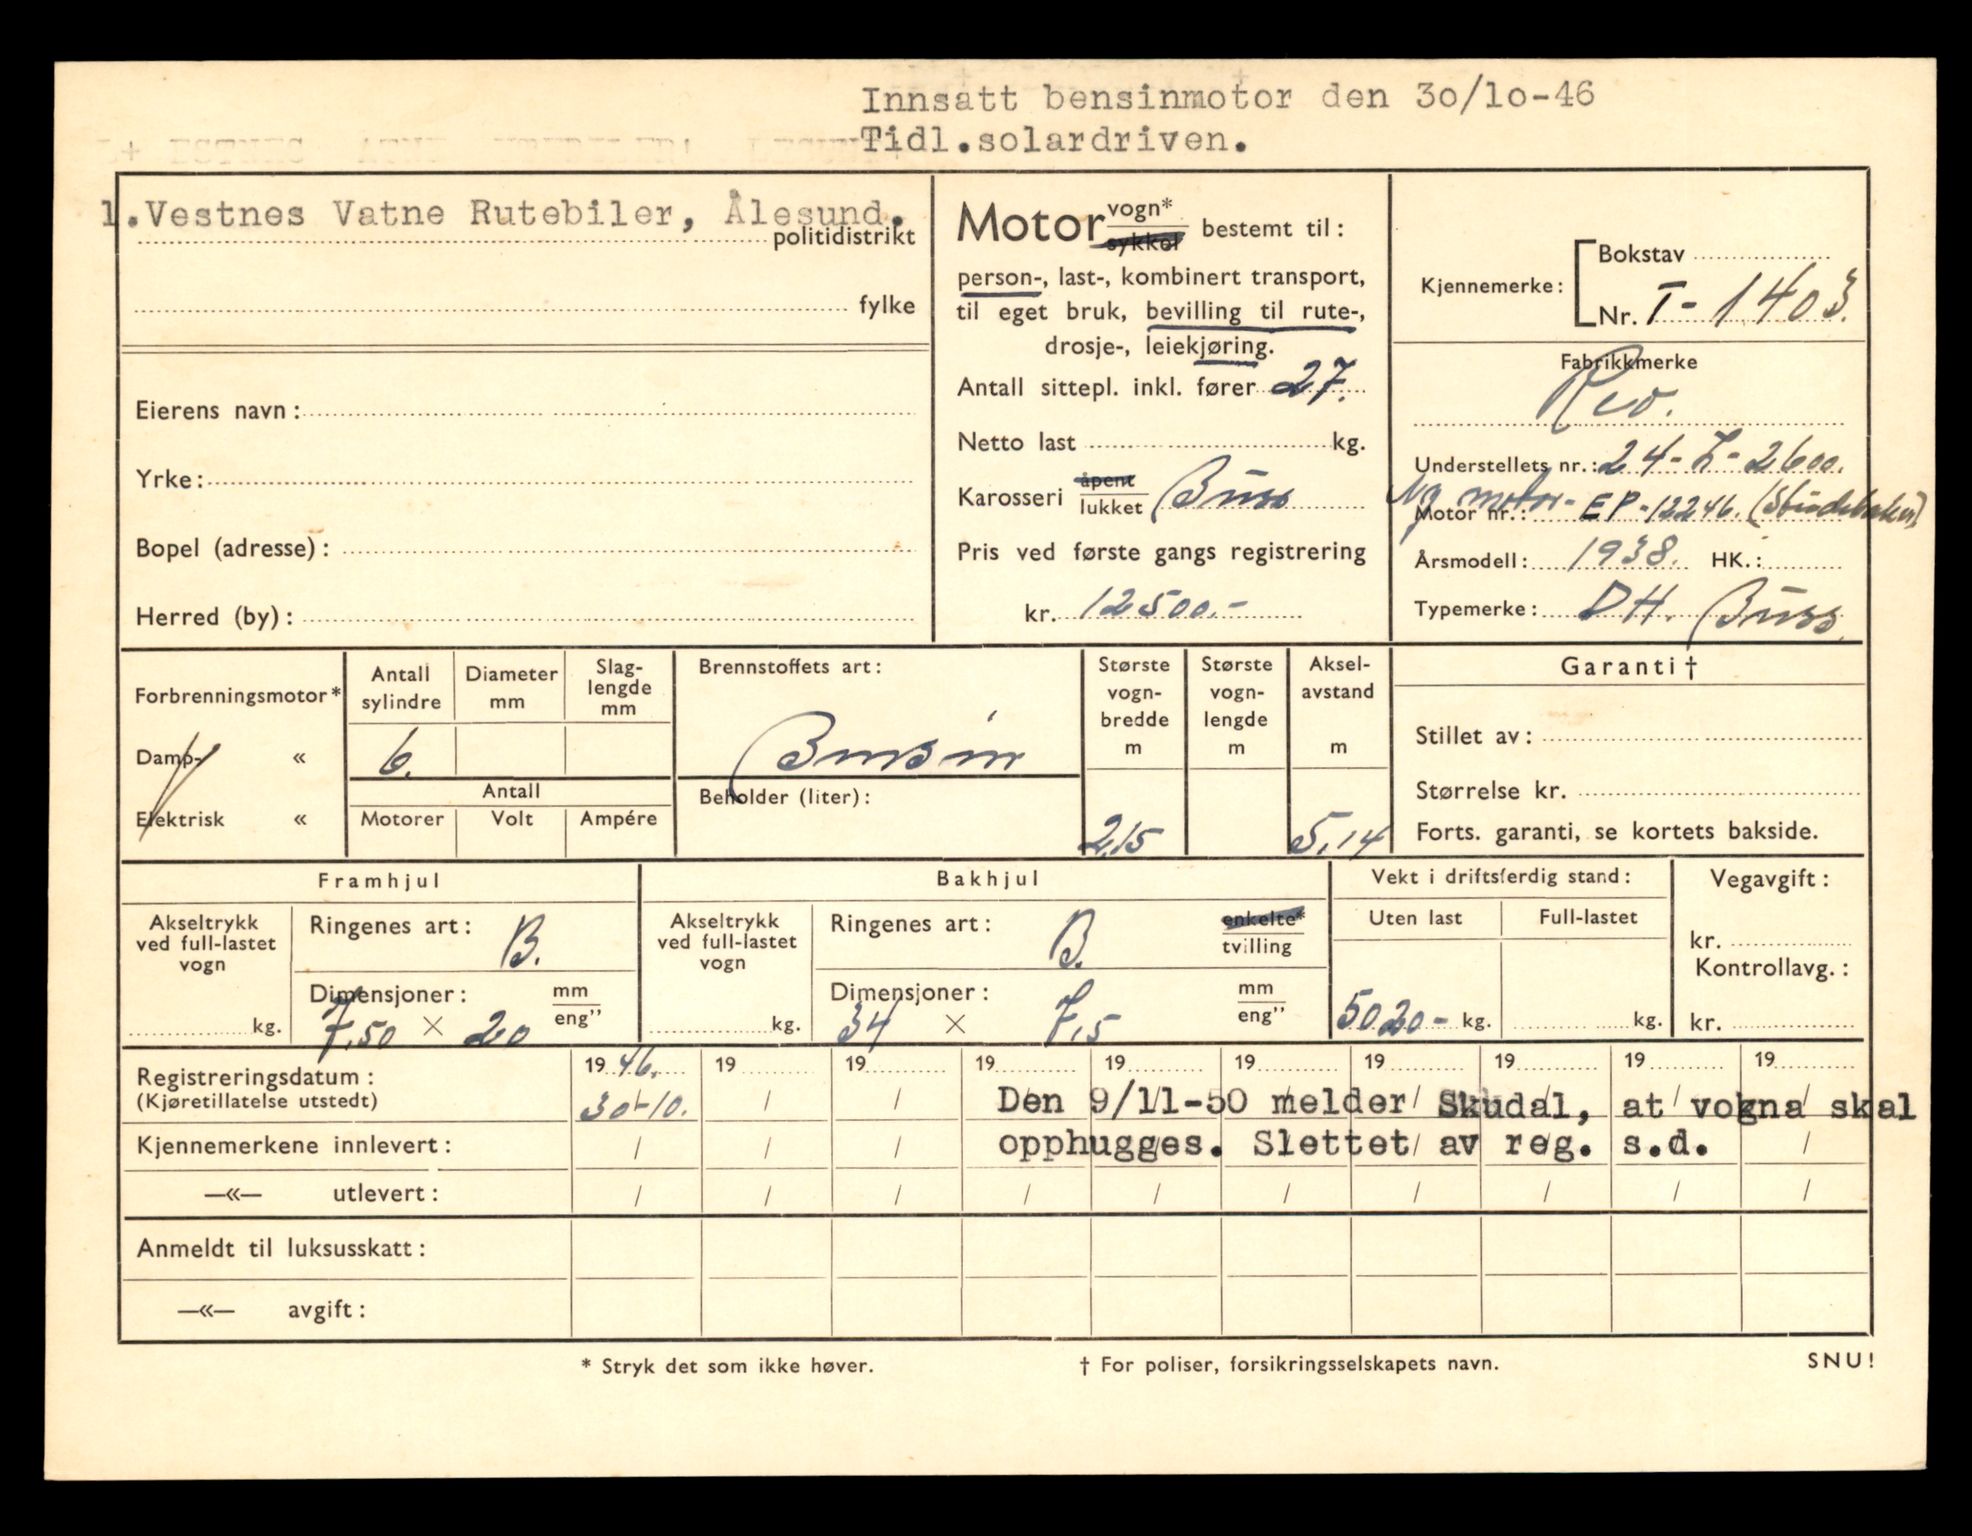 Innsatt bensinmotor den 30/10-46
Tidl.solardriven.
1.Vestnes Vatne Rutebiler, Ålesund.
politidistrikt
fylke
Eierens navn:
Yrke:
Bopel (adresse):
Herred (by):
Motor vogn* sykkel bestemt til:
person-, last-, kombinert transport,
til eget bruk, bevilling til rute-,
drosje-, leiekjøring.
Antall sittepl. inkl. fører 27.
Netto last kg.
Karosseri åpent lukket Buss
Pris ved første gangs registrering
kr. 12500.-
Kjennemerke:
Bokstav
Nr. T-1403.
Fabrikkmerke
Reo.
Understellets nr.: 24-L-2600.
Ny motor-
Motor nr.: EP-12246. (Studebaker)
Årsmodell: 1938. HK.:
Typemerke: DH. Buss.
Forbrenningsmotor*
Damp- «
Elektrisk «
Antall sylindre
Diameter mm
Slag-lengde mm
6.
Antall
Motorer Volt Ampére
Brennstoffets art:
Bensin
Beholder (liter):
Største vogn-bredde m
2,15
Største vogn-lengde m
Aksel-avstand m
5,14
Garanti†
Stillet av:
Størrelse kr.
Forts. garanti, se kortets bakside.
Framhjul
Akseltrykk ved full-lastet vogn
kg.
Ringenes art: B.
Dimensjoner: mm eng''
7.50 × 20
Bakhjul
Akseltrykk ved full-lastet vogn
kg.
Ringenes art: B. enkelte* tvilling
Dimensjoner: mm eng''
34 × 7,5
Vekt i driftsferdig stand:
Uten last Full-lastet
5020- kg. kg.
Vegavgift:
kr.
Kontrollavg.:
kr.
Registreringsdatum: 1946. 19 19 19 19 19 19 19 19 19
(Kjøretillatelse utstedt) 30-10. / / Den 9/11-50 melder Skudal, at vogna skal
Kjennemerkene innlevert: / / / opphugges. Slettet av reg. s.d. /
—«— utlevert: / / / / / / / / / /
Anmeldt til luksusskatt:
—«— avgift:
* Stryk det som ikke høver. † For poliser, forsikringsselskapets navn. SNU!